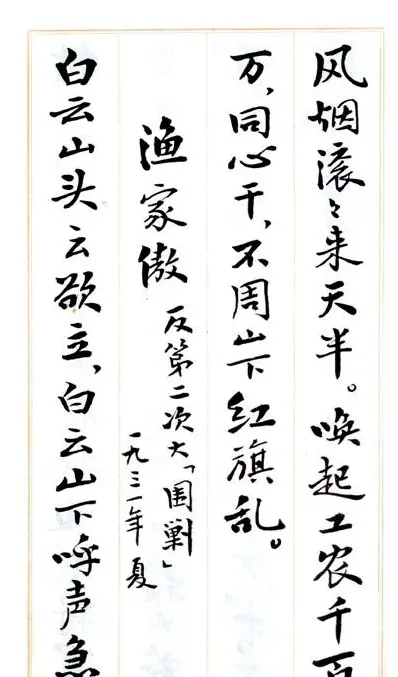 风烟滚々来天半。唤起工农千百
万，同心干，不周山下红旗乱。
渔家傲
反第二次大「围剿」
一九三一年夏
白云山头云欲立，白云山下呼声急